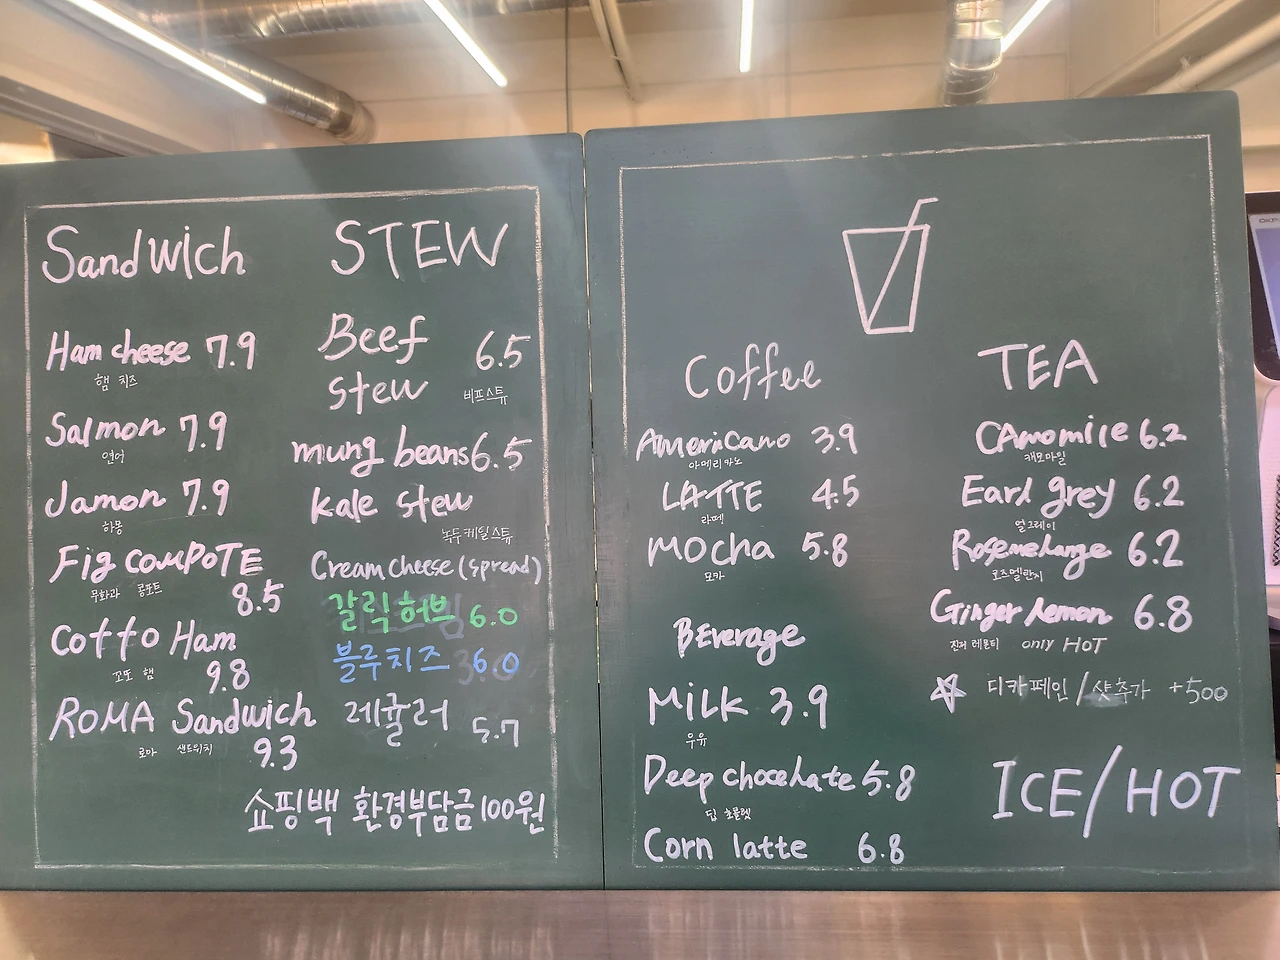 Sandwich
Ham cheese 7.9
햄 치즈
Salmon 7.9
연어
Jamon 7.9
하몽
Fig COMPOTE
무화과 콩포트 8.5
Cotto Ham
꼬또 햄 9.8
ROMA Sandwich
로마 샌드위치 9.3
STEW
Beef
stew 6.5
비프스튜
mung beans 6.5
kale stew
녹두케일스튜
Cream cheese (spread)
갈릭허브 6.0
블루치즈 6.0
레귤러 5.7
쇼핑백 환경부담금 100원
Coffee
Americano 3.9
아메리카노
LATTE 4.5
라떼
Mocha 5.8
모카
BEverage
MiLK 3.9
우유
Deep chocehate 5.8
딥 초콜렛
Corn latte 6.8
TEA
CAmomile 6.2
캐모마일
Earl grey 6.2
얼그레이
Rosemehange 6.2
로즈멜란지
Ginger lemon 6.8
진저 레몬티 only HOT
☆ 디카페인/샷추가 +500
ICE/HOT